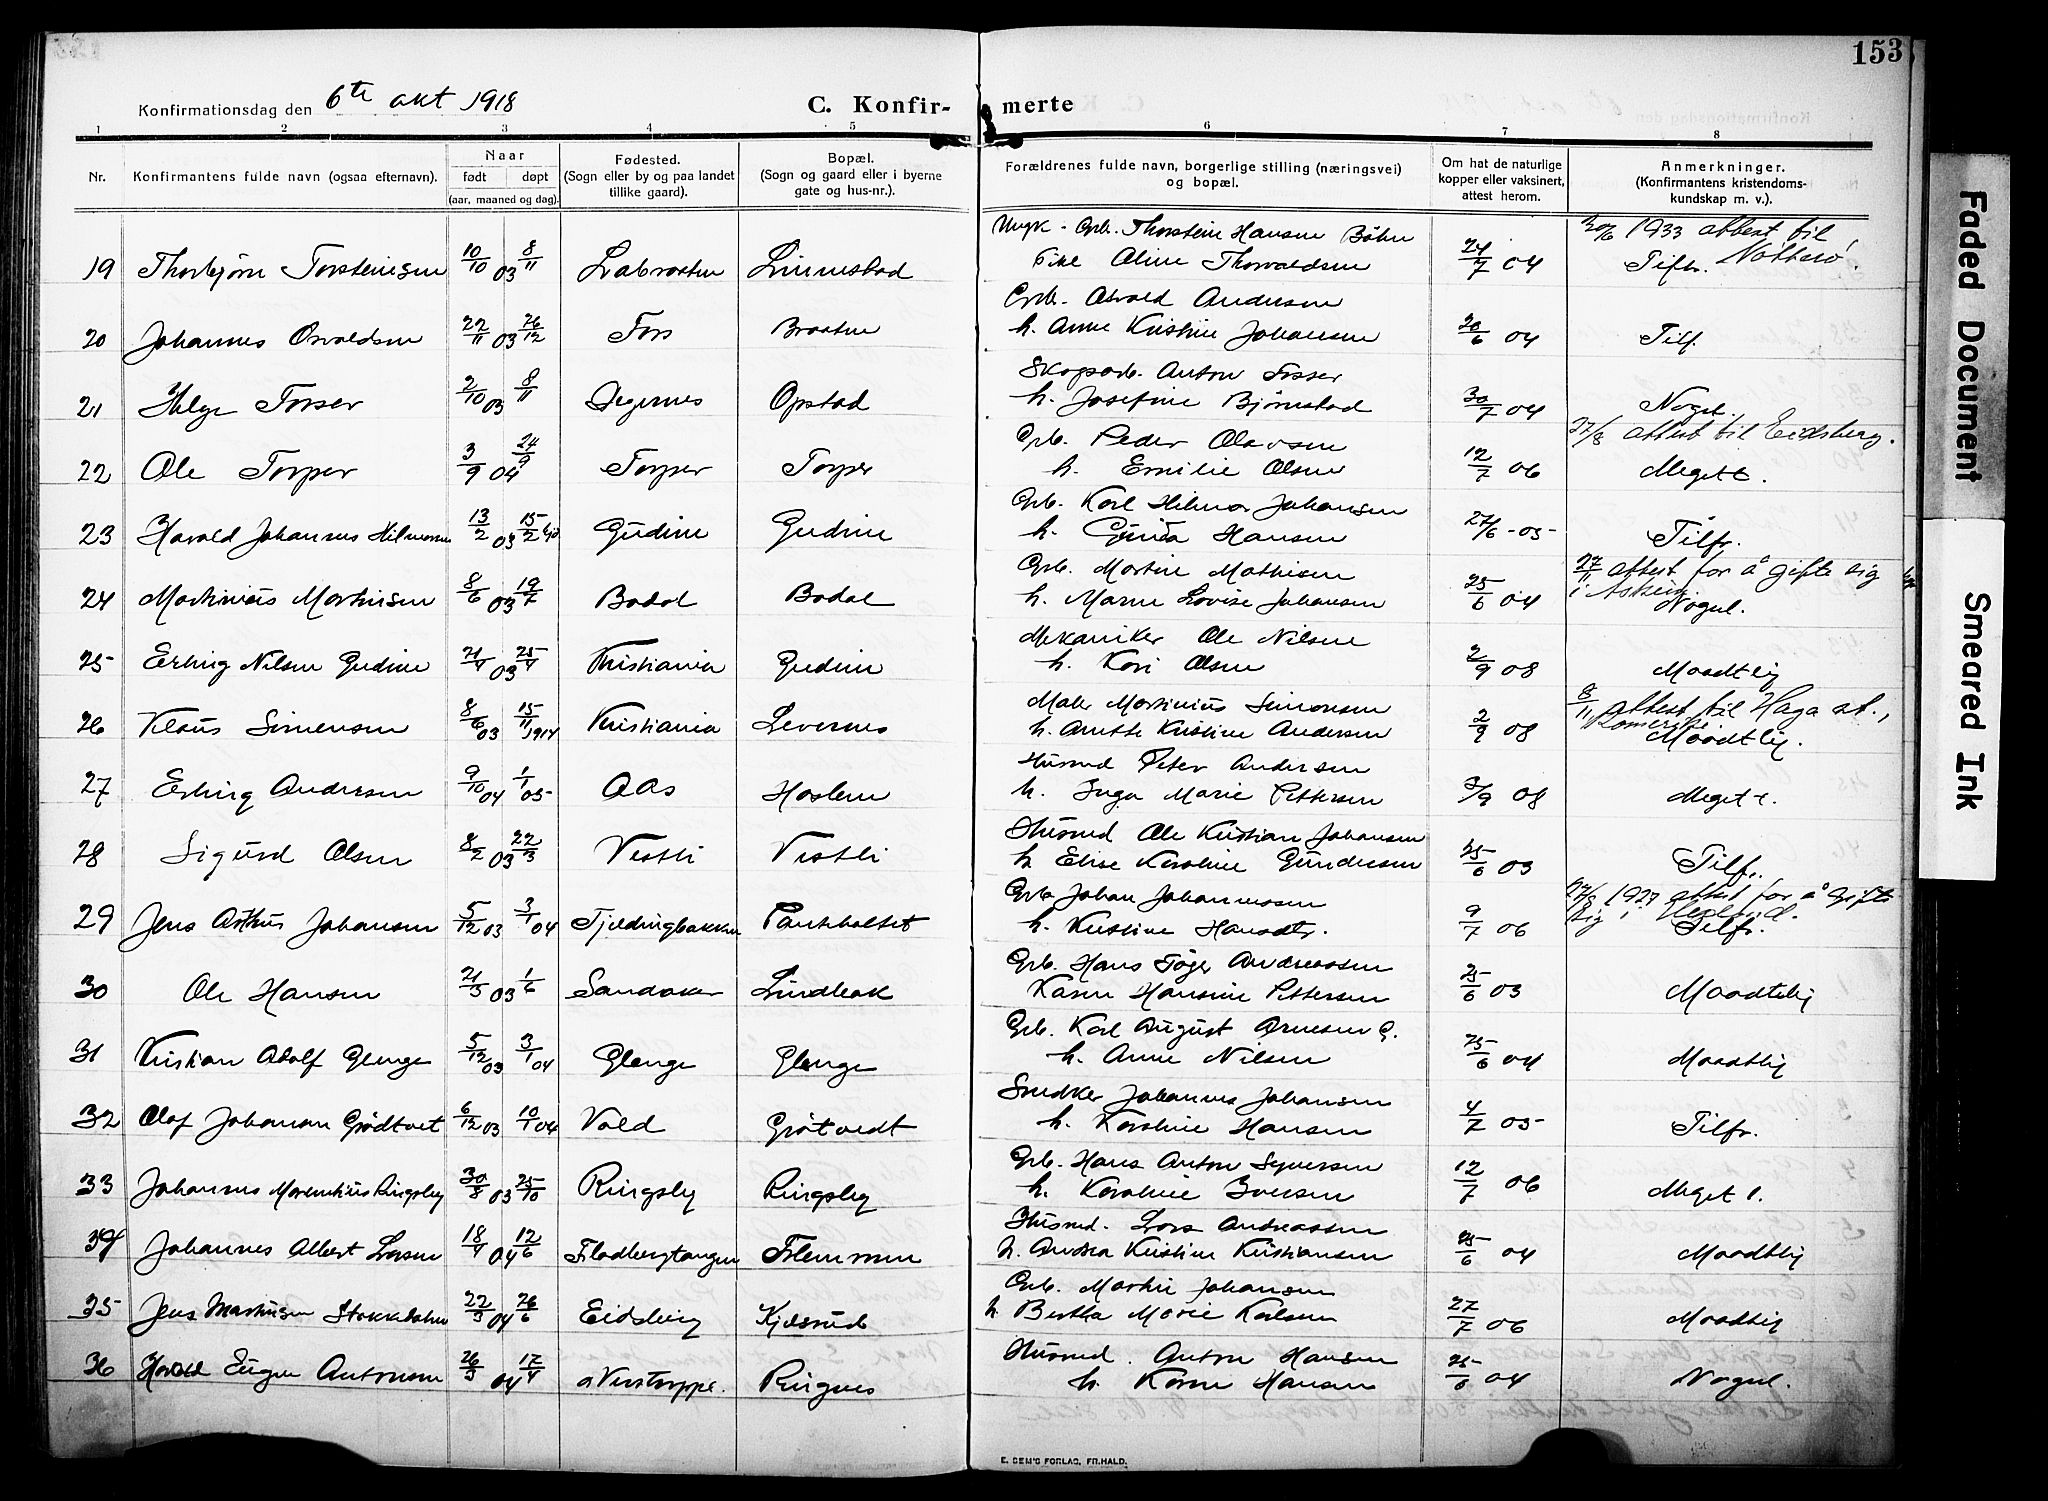 153
Konfirmationsdag den 6te okt 1918
C. Konfir- merte
1 2 3 4 5 6 7 8
Nr.
Konfirmantens fulde navn (ogsaa efternavn).
Naar
født døpt
(aar, maaned og dag).
Fødested.
(Sogn eller by og paa landet
tillike gaard).
Bopæl.
(Sogn og gaard eller i byerne
gate og hus-nr.).
Forældrenes fulde navn, borgerlige stilling (næringsvei)
og bopæl.
Om hat de naturlige
kopper eller vaksinert,
attest herom.
Anmerkninger.
(Konfirmantens kristendoms-
kundskap m. v.).
Ungk. - Arb. Thorstein Hansen Bøhn 30/6 1933 attest til
19 Thorbjørn Torsteinsen 10/10 03 8/11 Labraaten Linnestad Pike Aline Thorvaldsen 24/7 04 Tilfr. Nøtterø.
Osvald Andersen
20 Johannes Osvaldsen 22/11 03 26/12 Fors Braaten h. Anne Kristine Johansen 20/6 04 Tilf.
Skogsarb. Anton Fosser
21 Helge Fosser 2/10 03 8/11 Degernes Opstad h. Josefine Bjørnstad 30/7 04 Noget.
Grb. Peder Olavsen 27/8 attest til Eidsberg.
22 Ole Torper 3/9 04 24/9 Torper Torper h. Emilie Olsen 12/7 06 Meget t.
Grb. Karl Hilmar Johansen
23 Harald Johannes Hilmarsen 13/2 03 15/2 Gudim Gudim h. Hansen 27/6 - 05 - Tilfr.
Grb. Martin Mathisen 27/11 attest for å gifte sig
24 Martinius Martinsen 8/6 03 19/7 Bodal Bodal h. Maren Lovise Johansen 25/6 04 i Askim. Nogul.
Mekaniker Ole Nilsen
25 Erling Nilsen Gudim 21/4 03 25/4 Kristiania Gudim h. Kari Olsen 2/9 08 Maadtlig
Maler Martinius Simensen 8/11 attest til Haga st.,
26 Klaus Simensen 8/6 03 15/11 1914 Kristiania Levernes h. Anette Kristine Andersen 2/9 08 Maadtlig.
Husmd Peter Andersen
27 Erling Andersen 9/10 04 1/1 05 Aas Haslem h. Inga Marie Pettersen 2/9 08 Meget t.
Husmd Ole Kristian Johansen
28 Sigurd Olsen 8/2 03 22/3 Vestli Vestli h. Elise Karoline Gundersen 25/6 03 Tilfr.
Grb Johan Johannessen 27/8 1927 attest for å gifte
29 Jens Arthur Johansen 5/12 03 3/1 04 Fjeldingbakken h. Kristine Hansdtr. 9/7 06 sig i Tilfr.
Grb. Hans Andreassen
30 Ole Hansen 21/5 03 1/6 Sandaker Lindbak Karen Hansine Pettersen 25/6 03 Maadtelig
Grb. Karl August Arnesen G.
31 Kristian Adolf Glenge 5/12 03 3/1 04 Glenge Glenge h. Anne Nilsen 25/6 04 Maadtlig
Snedker Johannes Johansen
32 Olaf Johansen Grødtvet 6/12 03 10/1 04 Vold Grøtvedt h. Karoline Hansen 4/7 05 Tilfr.
Grb. Hans Anton Syversen
33 Johannes Marenthius Ringsby 30/8 03 25/10 Ringsby Ringsby h. Karoline Iversen 12/7 06 Meget t.
Husmd. Lars Andreassen
34 Johannes Albert Larsen 18/4 04 12/6 Fladbergtangen Flemmen h. Andrea Kristine Kristiansen 25/6 04 Maadtlig
Grb. Martin Johansen
35 Jens Martinsen 22/3 04 26/6 Eidsberg Kjelsrud h. Bertha Marie Karlsen 27/7 06 Maadtlig
Husmd. Anton Hansen
36 Harald Eugen Antonsen 26/3 04 17/4 Ringnes h. Karen Hansen 25/6 04 Nogul.
E. SEM'S FORLAG, FR.HALD.
Faded Document
Smeared Ink